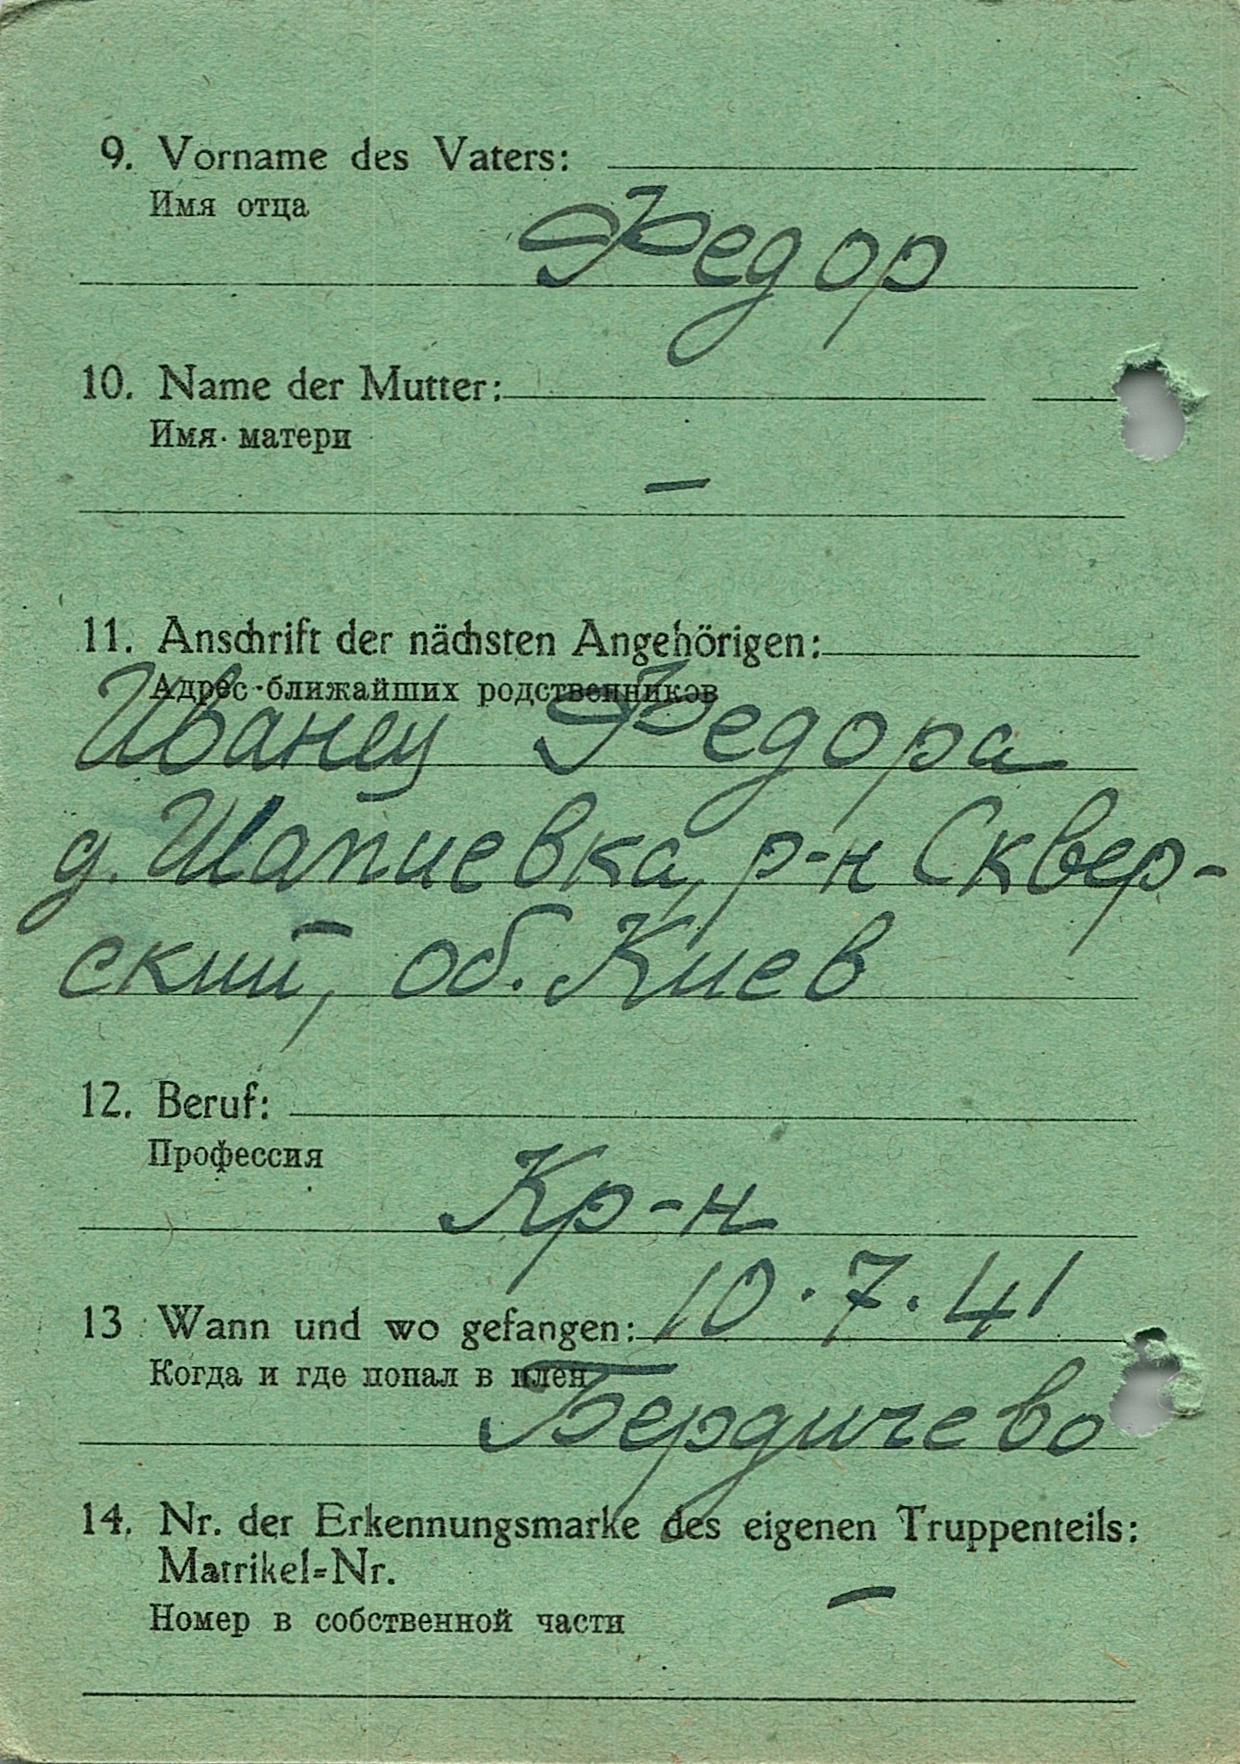 9. Vorname des Vaters:
Имя отца
Федор
10. Name der Mutter:
Имя матери
–
11. Anschrift der nächsten Angehörigen:
Адрес ближайших родственников
Иванец Федора
д. Шапиевка, р-н Сквер-
ский, об. Киев
12. Beruf:
Профессия
Кр-н
10.7.41
13 Wann und wo gefangen:
Когда и где попал в плен
Бердичево
14. Nr. der Erkennungsmarke des eigenen Truppenteils:
Matrikel=Nr.
–
Номер в собственной части